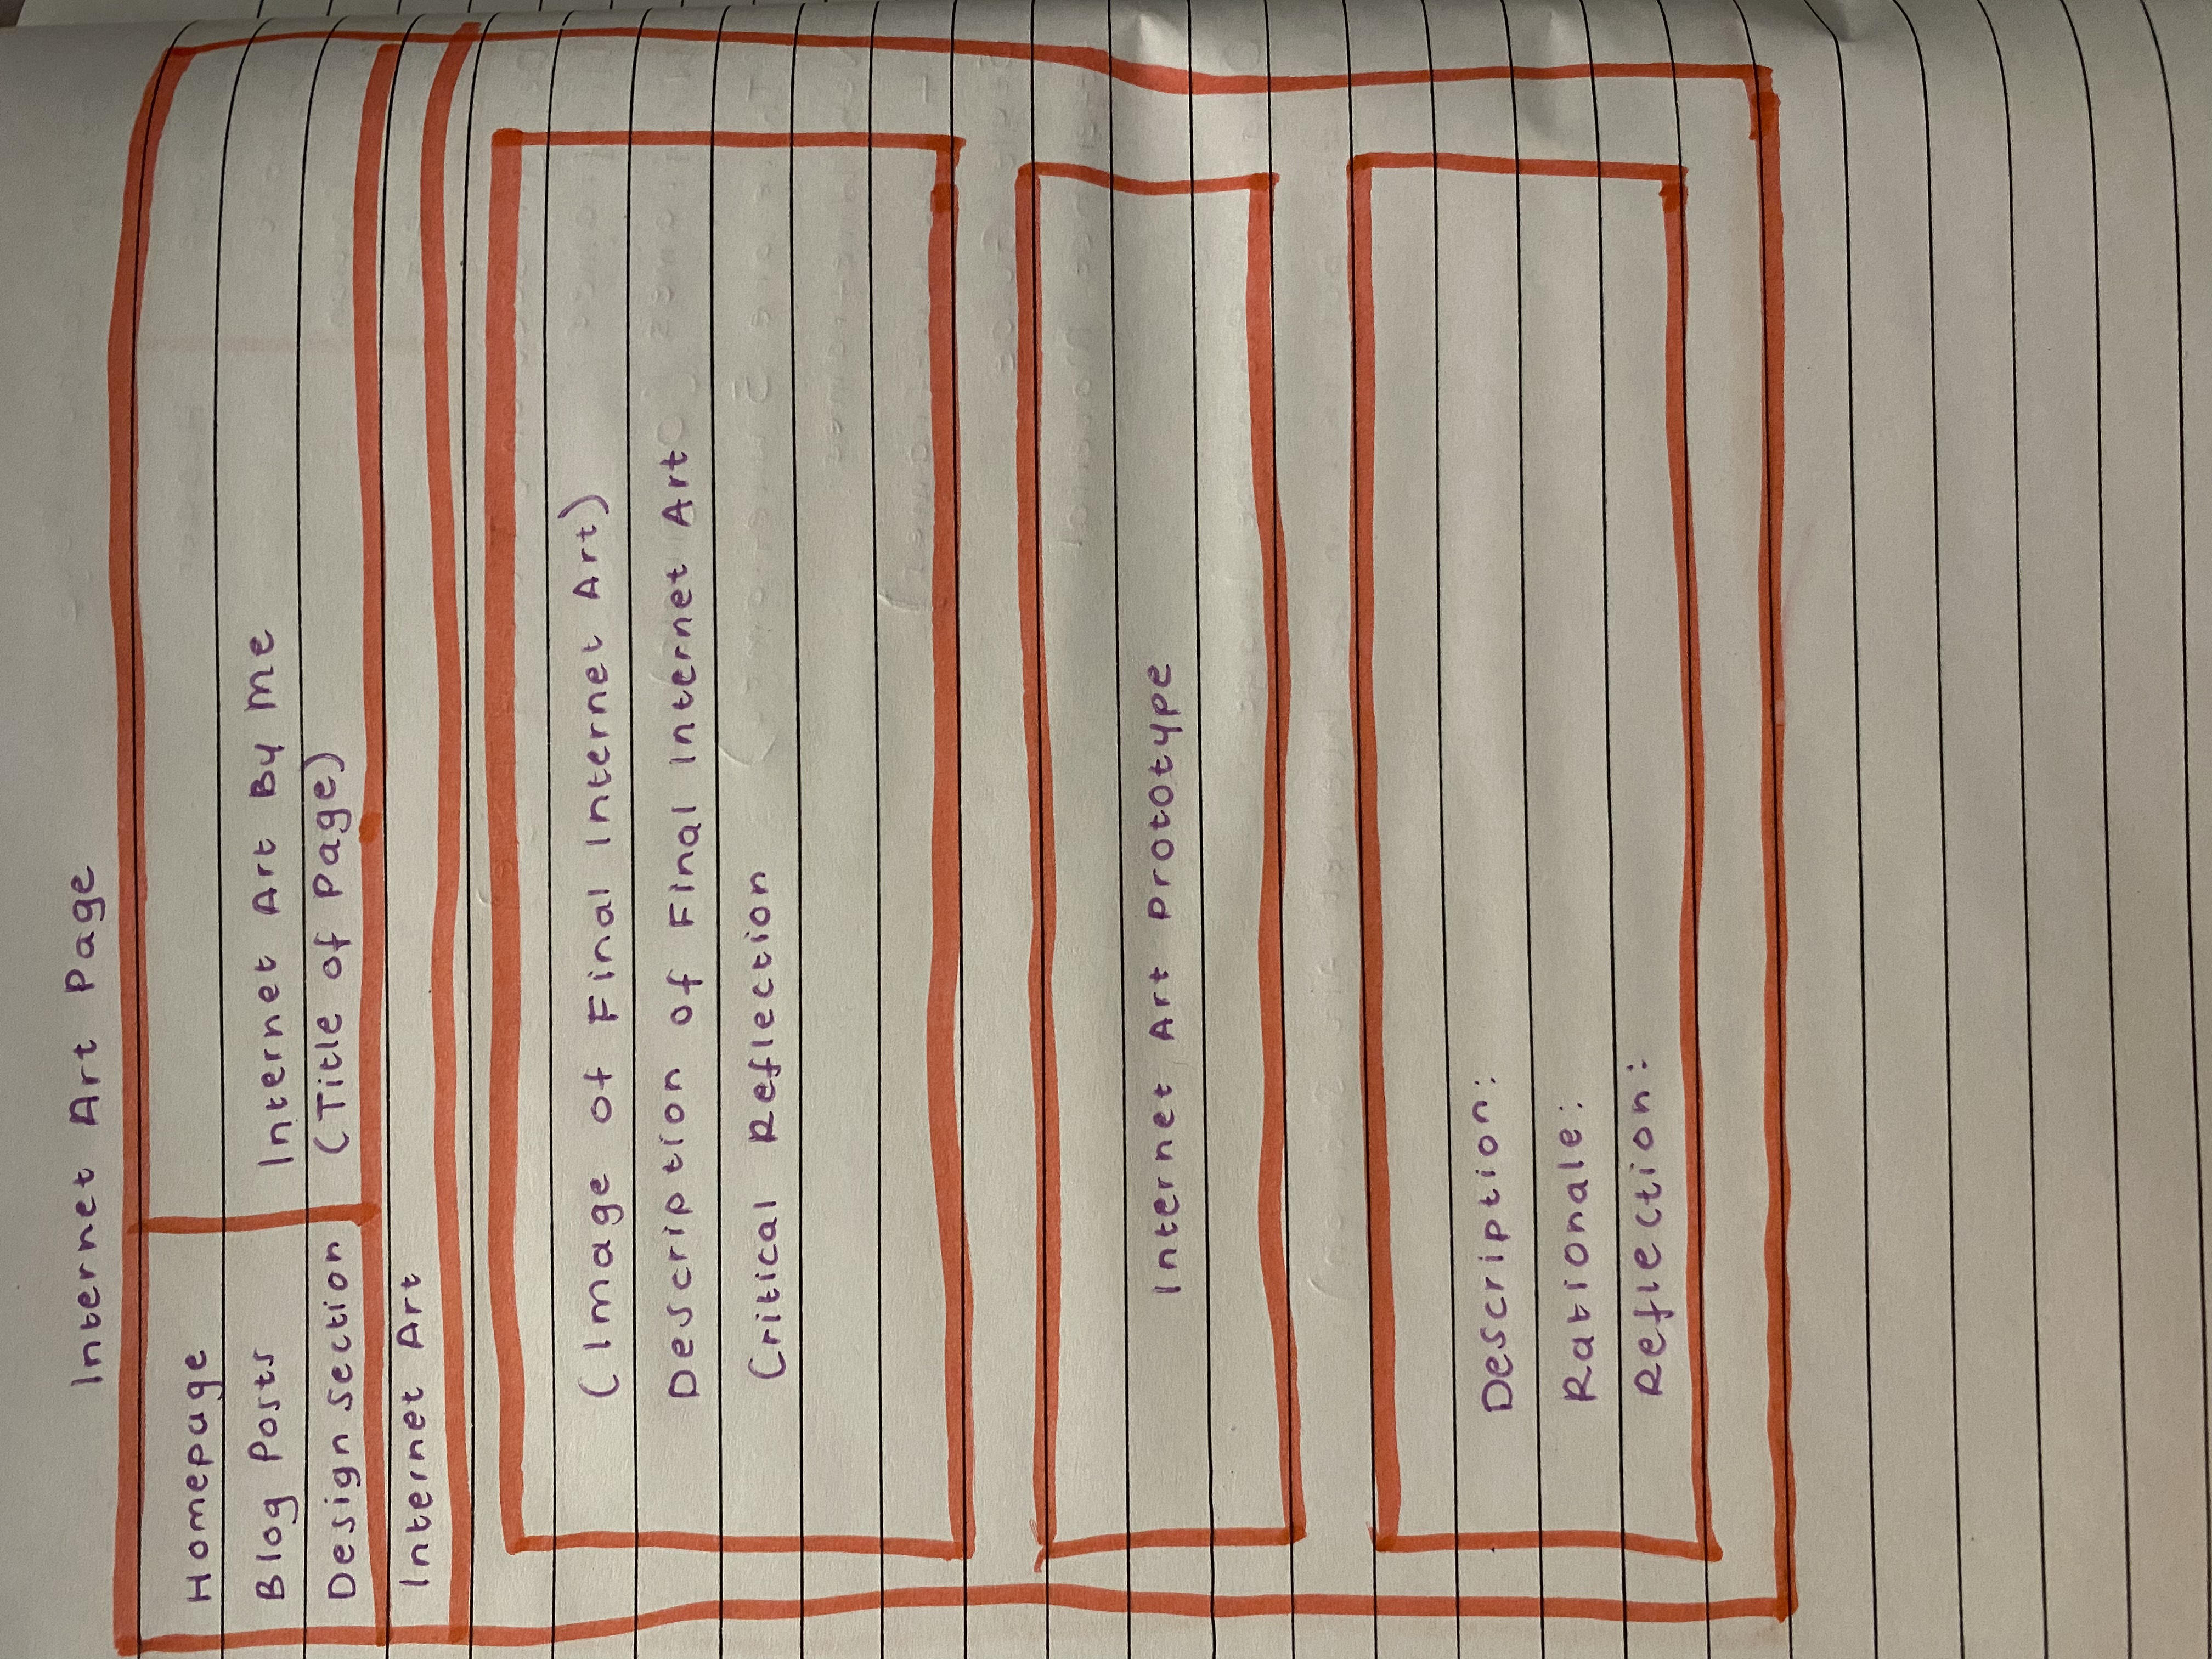 Internet Art Page
Homepage
Blog Posts
Design Section
Internet Art By Me
(Title of Page)
Internet Art
(Image of Final Internet Art)
Description of Final Internet Art
Critical Reflection
Internet Art Prototype
Description:
Rationale:
Reflection: